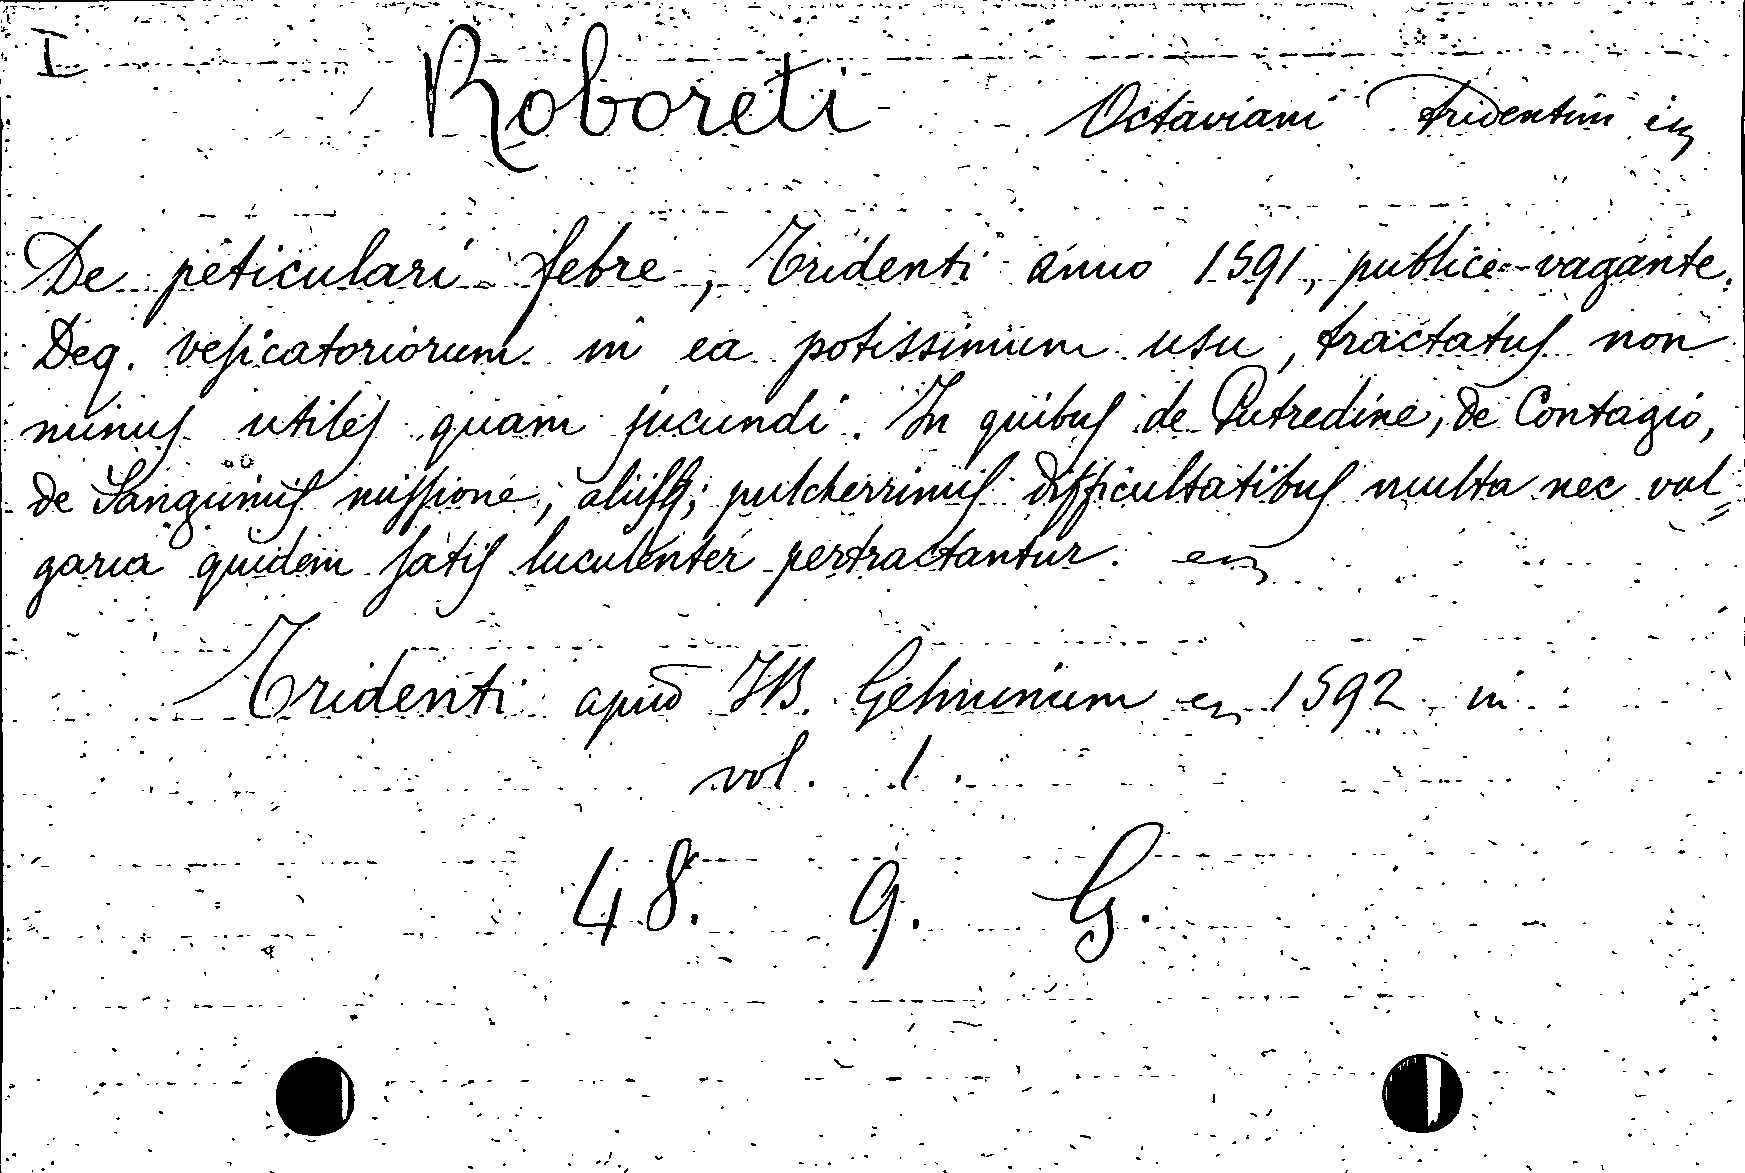 I
Roboreti Octaviani Tridentini
De peticulari febre, Tridenti anno 1591, publice vagante.
Deq. vesicatoriorum in ea potissimum usu, tractatus non
minus utiles quam jucundi. In quibus de Putredine, de Contagio,
de Sanguinis missione, aliisq; pulcherrimis difficultatibus multa nec vul=
garia quidem satis luculenter pertractantur.
Tridenti apud JB. Gelminum 1592 in
vol. 1.
48. 9. G.